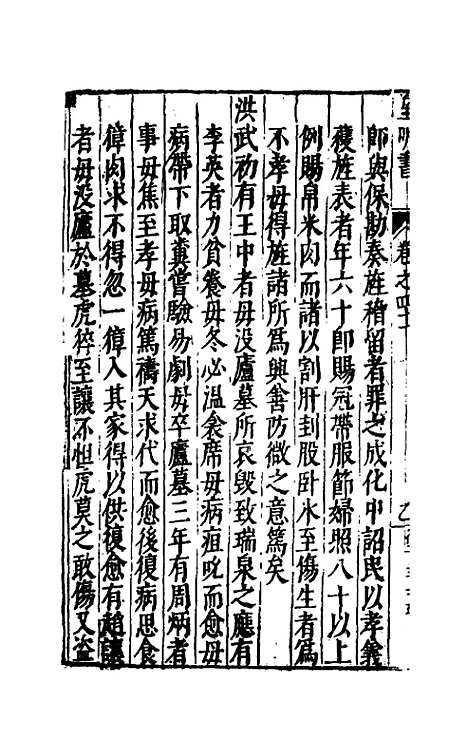 師與保勘奏旌稽留者罪之成化中詔民以孝義
獲旌表者年六十即賜冠帶服節婦照八十以上
例賜帛米肉而諸以割肝刲股臥氷至傷生者爲
不孝毋得旌諸所爲興舍防微之意篤矣
洪武初有王中者母没廬墓所哀毀致瑞泉之應有
李英者力貧養母冬必温衾席母病疽吮而愈母
病帶下取糞嘗驗易劇母卒廬墓三年有周炳者
事母焦至孝母病篤禱天求代而愈後復病思食
獐肉求不得忽一獐入其家得以供復愈有趙讓
者母没廬於墓虎猝至讓不怛虎莫之敢傷又盗